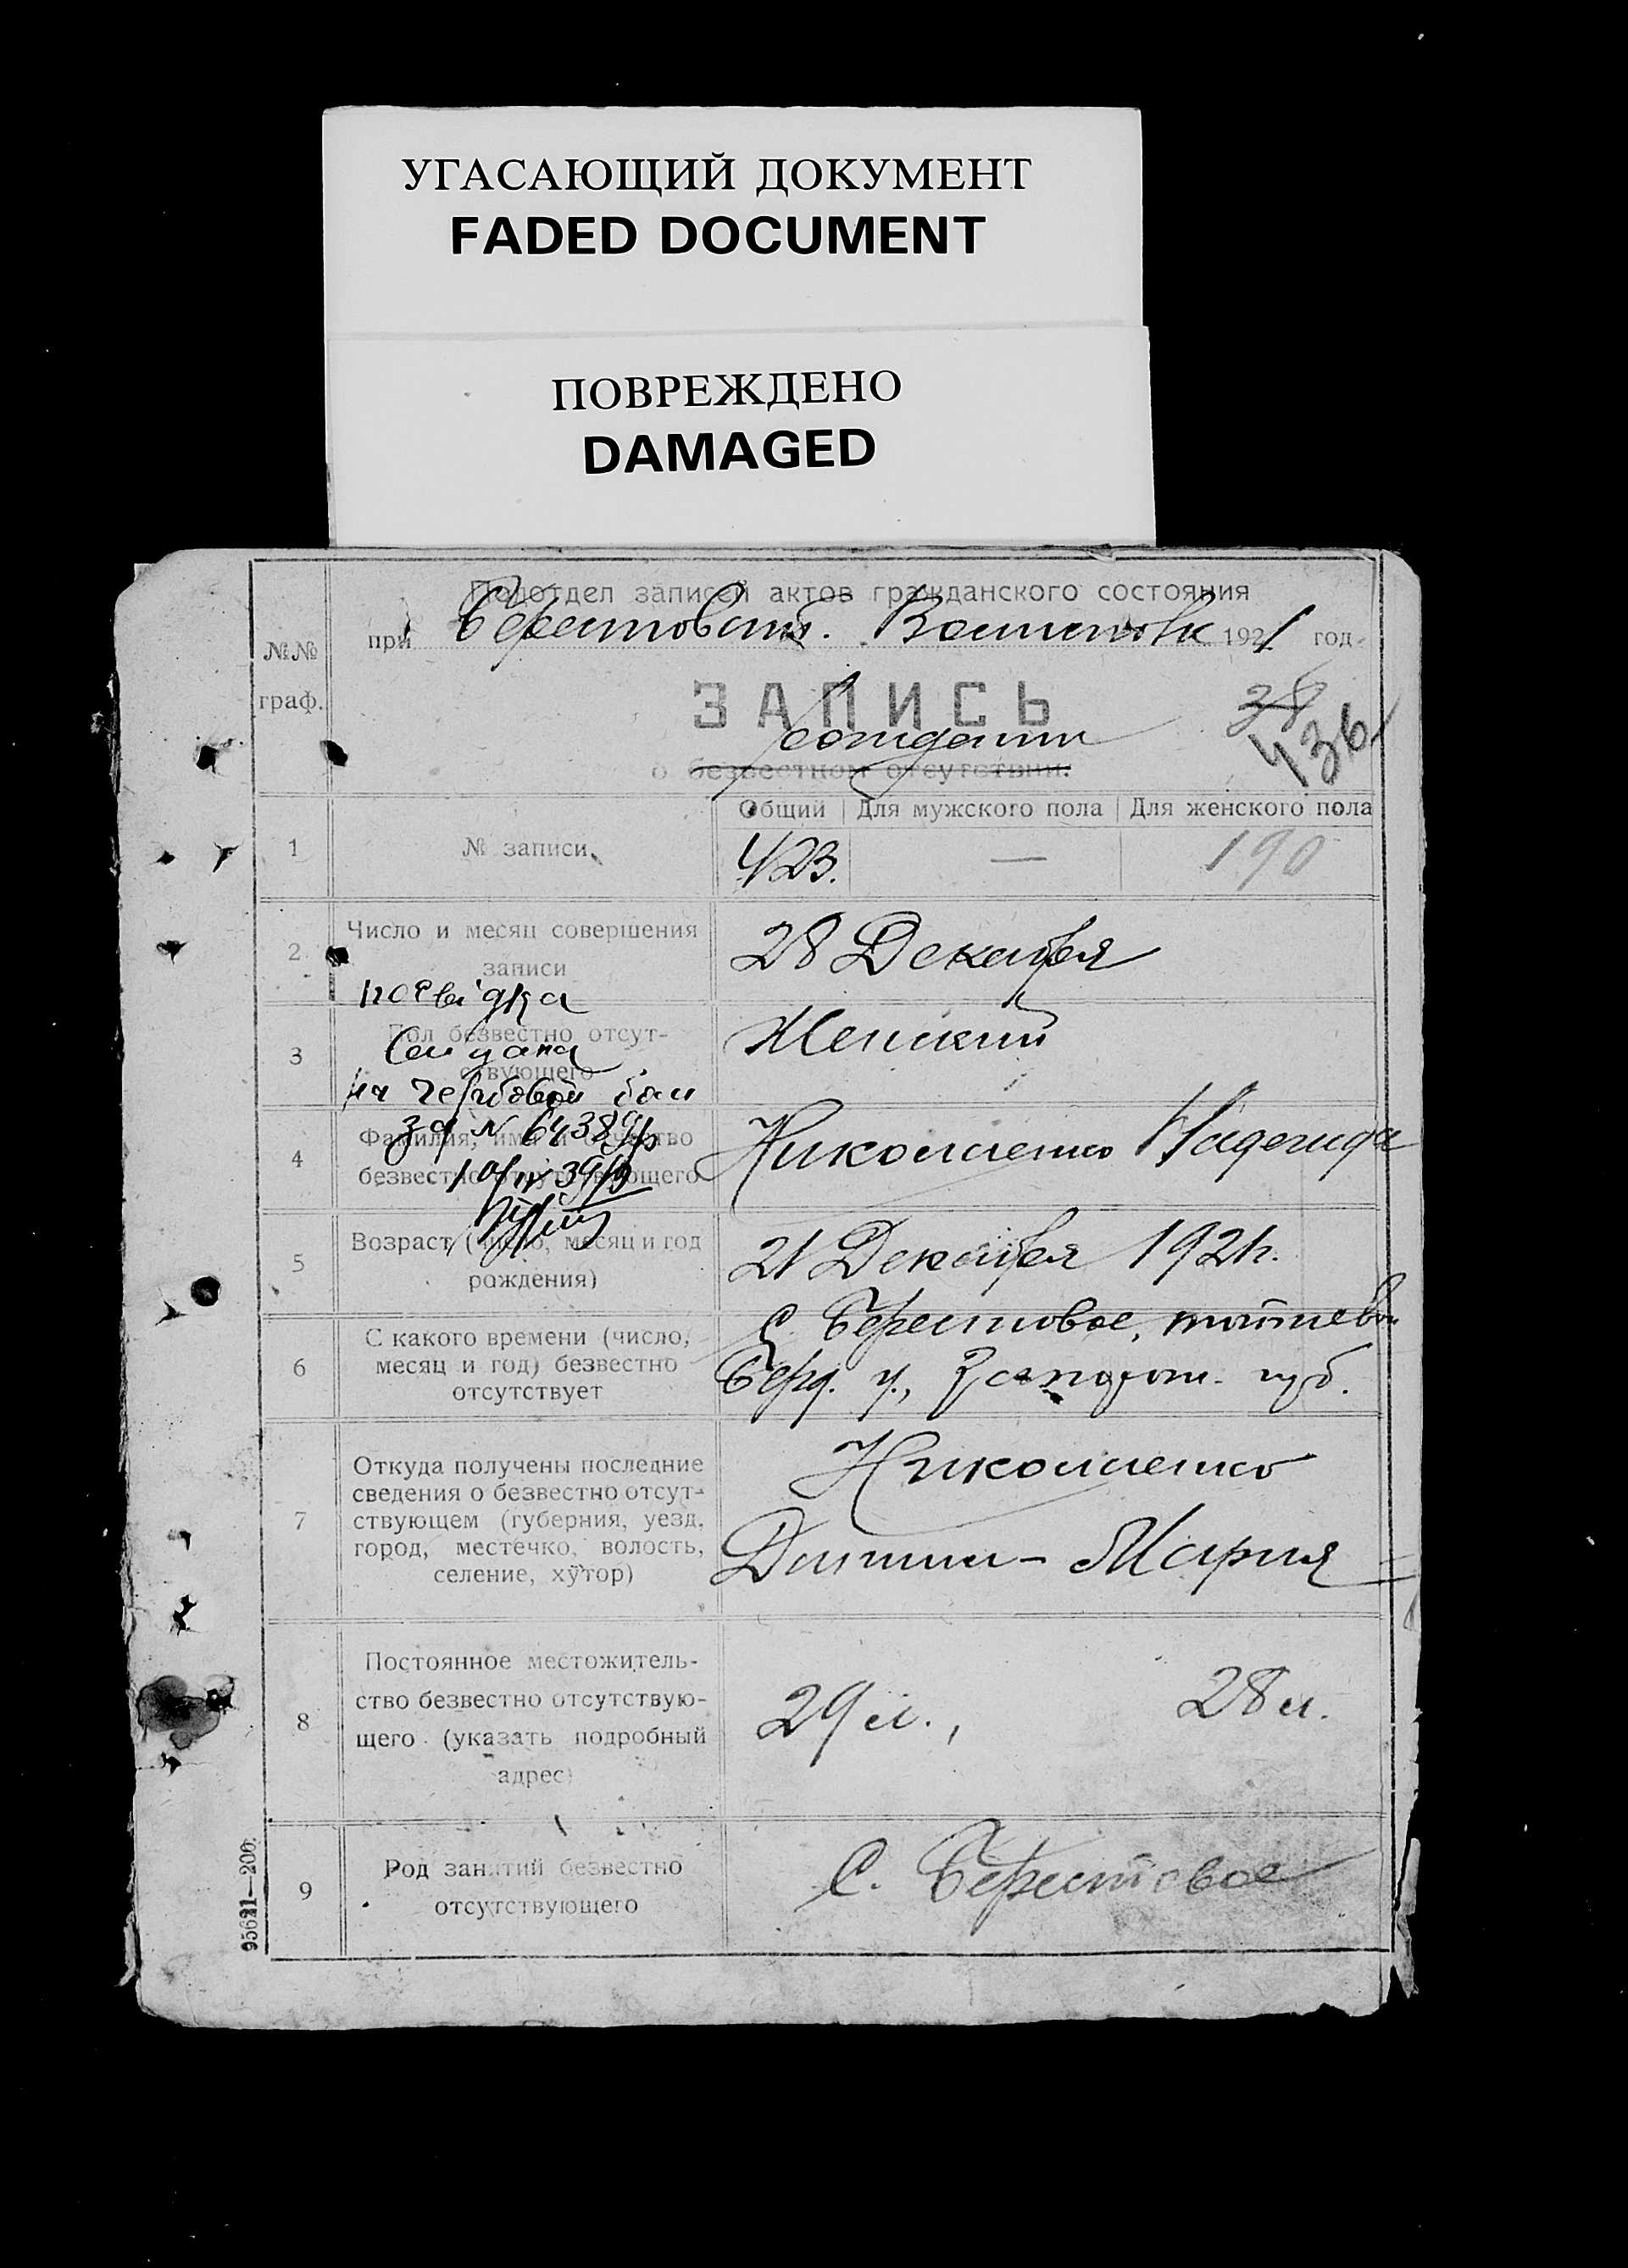 УГАСАЮЩИЙ ДОКУМЕНТ
FADED DOCUMENT
ПОВРЕЖДЕНО
DAMAGED
Подотдел записей актов гражданского состояния
№№ граф.
при Берестовском. Волисполк 1921 год
ЗАПИСЬ
38
436
о безвестном отсутствии.
Общий Для мужского пола Для женского пола
1 № записи 423. — 190
2 Число и месяц совершения записи 28 Декабря
3 Пол безвестно отсут-
ствующего
Женский
4 Фамилия, имя и отчество
безвестно отсутствующего
Николаенко Надежда
5 Возраст (число, месяц и год
рождения)
21 Декабря 1921г.
6 С какого времени (число,
месяц и год) безвестно
отсутствует
С. Берестовое,
Берд. у., Запорож. губ.
7 Откуда получены последние
сведения о безвестно отсут-
ствующем (губерния, уезд,
город, местечко, волость,
селение, хутор)
Николаенко
Мария
8 Постоянное местожитель-
ство безвестно отсутствую-
щего (указать подробный
адрес)
29 л., 28 л.
9 Род занятий безвестно
отсутствующего
С. Берестовое